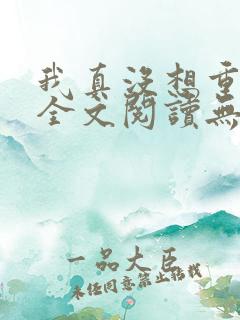 我真没想重
全文閱讀無
一品大臣
未经同意禁止转载